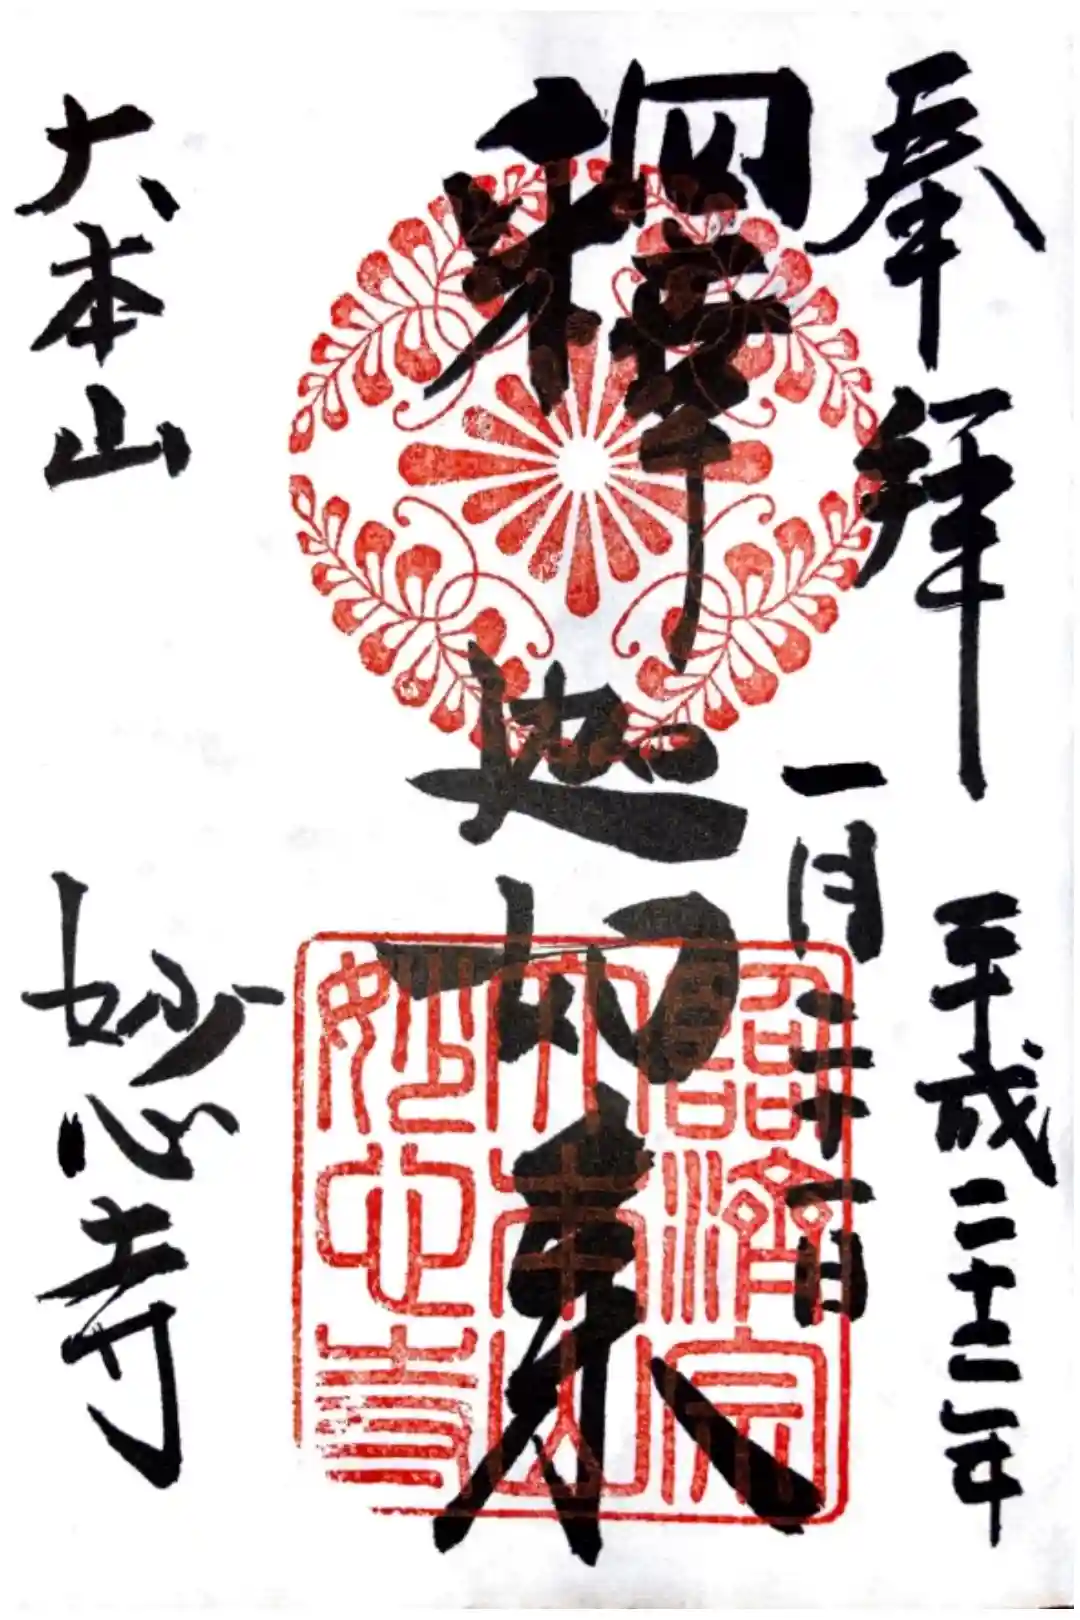 奉拝
平成二十二年
一月二十一日
釋迦如来
大本山
妙心寺
臨濟宗
大本山
妙心寺